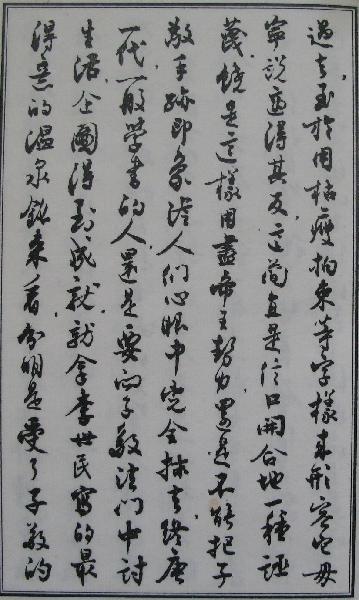 過去,至於用枯瘦拘束等字樣來形容它毋
寧說適得其反,這簡直是信口開合地一種誣
蔑,饒是這樣用盡帝王勢力,還是不能把子
敬手跡即象從人們心眼中完全抹去,終唐
一代,一般學書的人,還是要向子敬法門中討
生活,企圖得到成就,就拿李世民寫的最
得意的溫泉銘來看,分明是受了子敬的